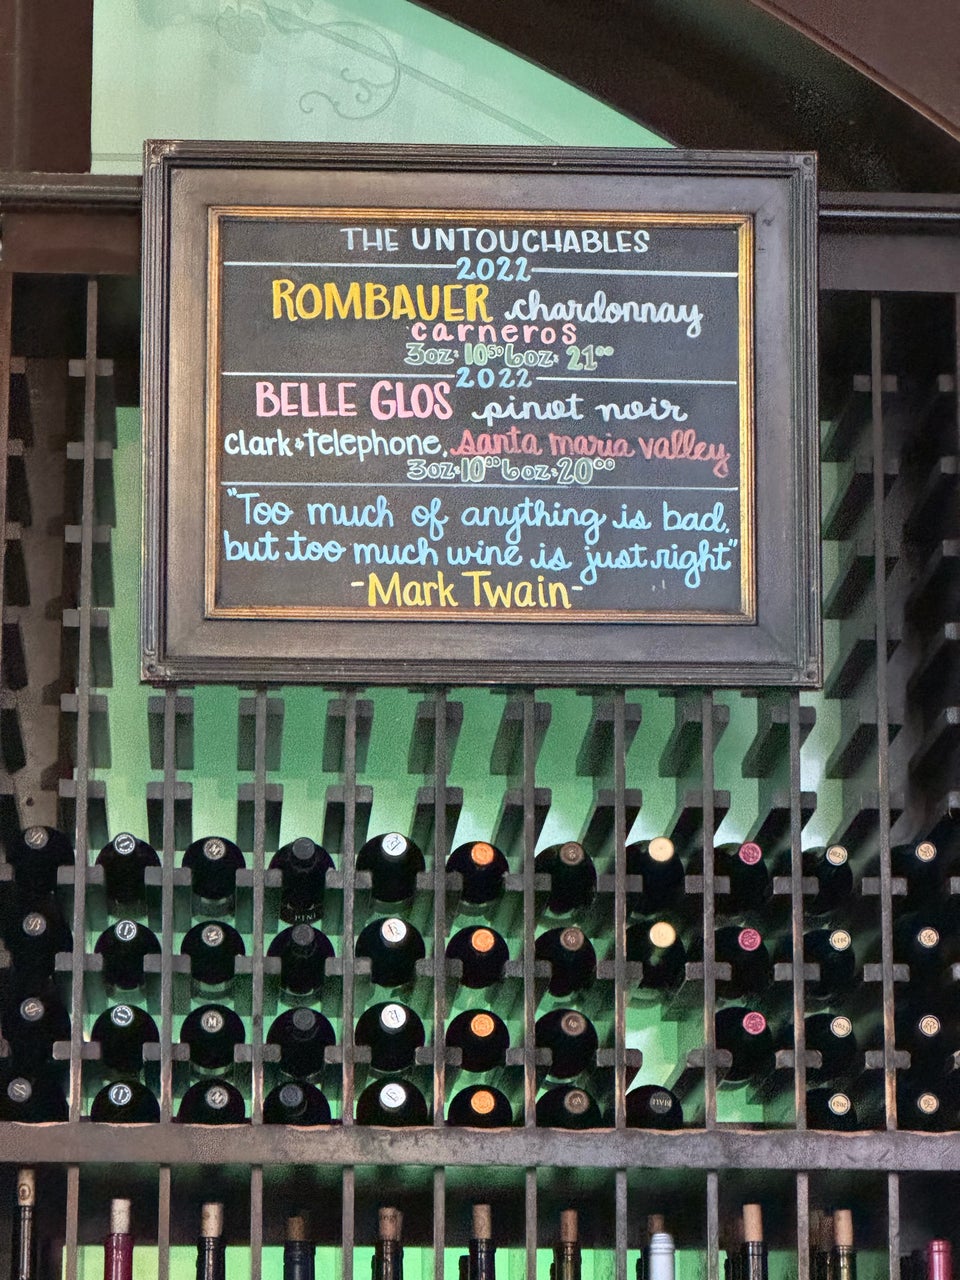 THE UNTOUCHABLES
2022
ROMBAUER chardonnay
carneros
3oz: 10⁵⁰ 6oz: 21⁰⁰
2022
BELLE GLOS pinot noir
clark & telephone, santa maria valley
3oz: 10⁰⁰ 6oz: 20⁰⁰
"Too much of anything is bad,
but too much wine is just right"
-Mark Twain-